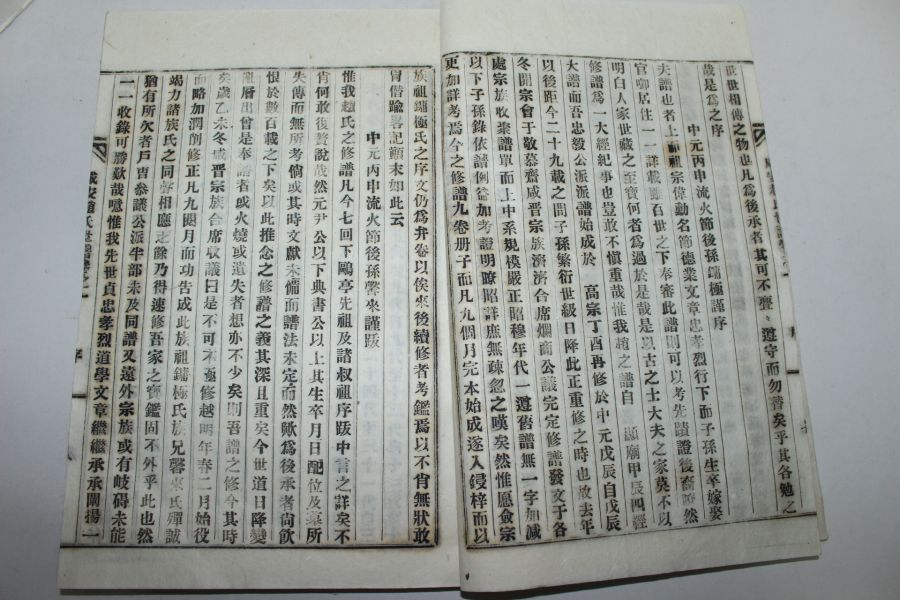 世世相傳之物也凡爲後承者其可不
遵守而勿替矣乎其各勉之
哉是爲之序
中元丙申流火節後孫鏞極謹序
夫譜也者上而祖宗偉勳名節德業文章忠孝烈行下而子孫生卒嫁娶
官啣居住一一詳載雖百世之下奉審此譜則可以考先蹟證後裔瞭然
明白人家世藏之至寶何者爲過於是哉是以古之士大夫之家莫不以
修譜爲一大經紀事也豈敢不愼重哉惟我趙之譜自 顯廟甲辰四經
大譜而吾忠毅公派派譜始成於 高宗丁酉再修於中元戊辰自戊辰
以後距今二十九載之間子孫繁衍世級日降此正重修之時也故去年
冬開宗會于敬慕齋咸晋宗族濟濟合席爛商公議完定修譜發文于各
處宗族收衆譜單而上中系規模嚴正昭穆年代一遵舊譜無一字加減
以下子孫錄依譜例益加考證明瞭昭詳庶無疎忽之嘆矣然惟愿僉宗
更加詳考焉今之修譜九卷册子而凡九個月完本始成遂入鋟梓而以
族祖鏞極氏之序文仍爲弁卷以俟來後續修者考鑑焉以不肖無狀敢
冐僭踰畧記顚末如此云
中元丙申流火節後孫馨來謹跋
惟我趙氏之修譜凡今七回下鷗亭先祖及諸叔祖序跋中言之詳矣不
肖何敢復贅說哉然元尹公以下典書公以上其生卒月日配位及墓所
失傳而無所考倘或其時文獻未備而譜法未定而然歟爲後承者尙飮
恨於數百載之下矣以此推念之修譜之義其深且重矣今世道日降變
亂層出曾是奉譜者或火燒或遺失者想亦不少矣則吾譜之修今其時
矣歲乙未冬咸晋宗族合席收議曰是不可不亟修越明年春二月始役
而略加潤削修正凡九閱月而功告成此族祖鏞極氏族兄馨來氏殫誠
竭力諸族氏之同聲相應之餘乃得速修吾家之寶鑑固不外乎此也然
猶有所欠者戶曹叅議公派半部未及同譜又遠外宗族或有岐碍未能
一一收錄可勝歎哉噫惟我先世貞忠孝烈道學文章繼繼承承闡揚一
咸安趙氏世譜卷之一
序